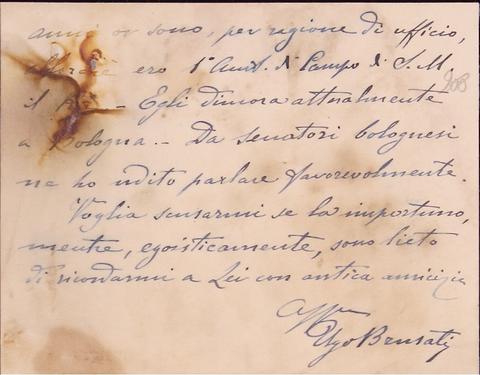 anni or sono, per ragione di ufficio,
allorchè ero 1° Aiut. di Campo di S. M.
il Re. - Egli dimora attualmente
a Bologna. - Da senatori bolognesi
ne ho udito parlare favorevolmente.
Voglia scusarmi se la importuno,
mentre, egoisticamente, sono lieto
di ricordarmi a Lei con antica amicizia
Aff
Ugo Brusati